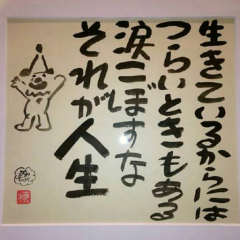 生きているからには
つらいときもある
涙こぼすな
それが人生